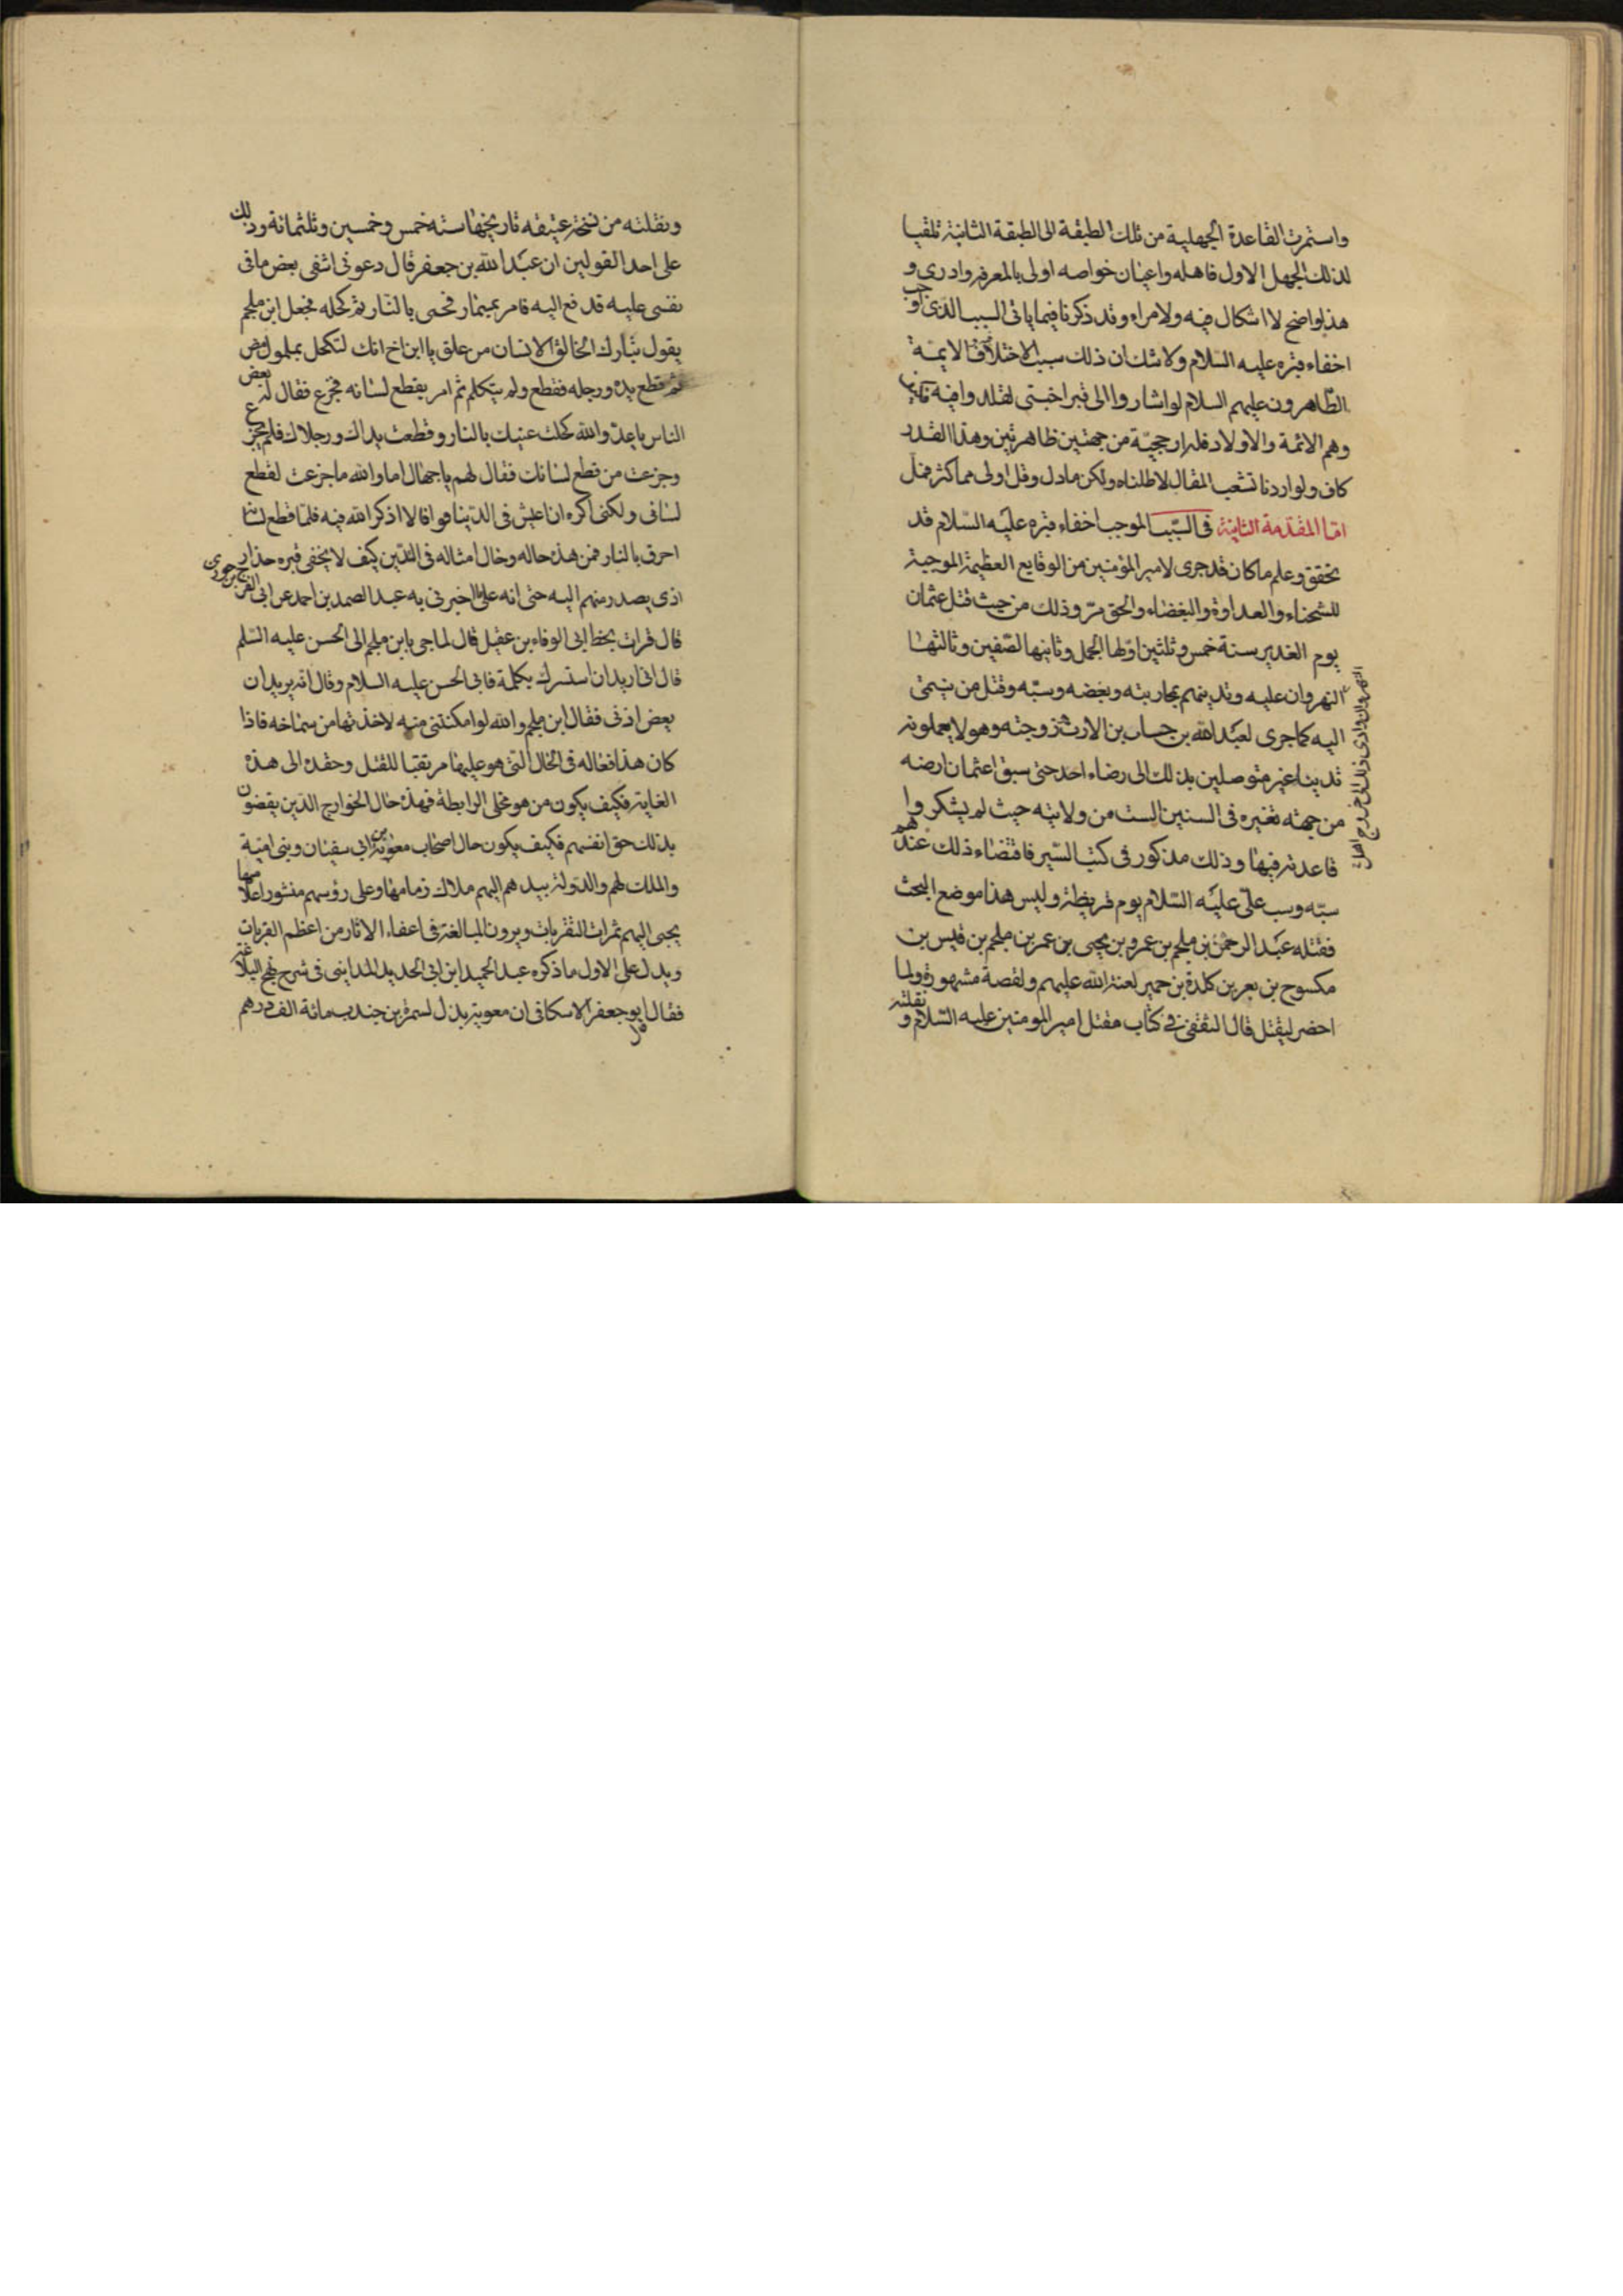 واستمرت القاعدة الجهلية من تلك الطبقة الى الطبقة الثانية تلقيا
لذلك الجهل الاول فاهله واعيان خواصه اولى بالمعرفة وادرى و
هذا واضح لا اشكال فيه ولا مراء وقد ذكرنا فيما ياتى السبب الذى اوجب
اخفاء قبره عليه السلام ولا شك ان ذلك سبب الاختلاف الايمة
الطاهرون عليهم السلام لو اشاروا الى قبر اجنبى لقلدوا فيه
وهم الائمة والاولاد فلهم ارجحية من جهتين ظاهرتين وهذا القدر
كاف ولو اردنا تشعب المقال لاطلناه ولكن ما دل وقل اولى مما كثر فمل
اما المقدمة الثانية فى السبب الموجب اخفاء قبره عليه السلام قد
تحقق وعلم ما كان قد جرى لامير المؤمنين من الوقايع العظيمة الموجبة
للشحناء والعداوة والبغضاء والحق مر وذلك من حيث قتل عثمان
يوم الغدير سنة خمس وثلثين اولها الجمل وثانيها الصفين وثالثها
النهروان وادى ذلك الى خروج اهل
النهروان عليه وتدينهم بمحاربته وبغضه وسبه وقتل من ينتمى
اليه كما جرى لعبد الله بن خباب بن الارت وزوجته وهولا يعملونه
تدينا غير متوصلين بذلك الى رضاء احد حتى سبق اعثمان ارضه
من جهته تغيره فى السنين الست من ولايته حيث لم يشكروا
قاعدته فيها وذلك مذكور فى كتب السير فاقتضاء ذلك عندهم
سبه وسب على عليه السلام يوم قريظة وليس هذا موضع البحث
فقتله عبد الرحمن بن ملجم بن عمرو بن يحيى بن عمر بن ملجم بن قيس بن
مكسوح بن بعر بن كلدة بن حمير لعنة الله عليهم ولقصة مشهورة ولما
احضر ليقتل قال الثقفى فى كتاب مقتل امير المومنين عليه السلام و
نقلته
ونقلته من نسخة عتيقه تاريخها سنه خمس وخمسين وثلثمائة وذلك
على احد القولين ان عبد الله بن جعفر قال دعونى اشفى بعض ما فى
نفسى عليه فدفع اليه فامر بمسمار فحمى بالنار ثم كحله فجعل ابن ملجم
يقول تبارك الخالق الانسان من علق يا ابن اخ انك لتكحل بملمول مض
ثم قطع يده ورجله فقطع ولم يتكلم ثم امر بقطع لسانه فجزع فقال له بعض
الناس يا عدو الله كحلت عنيك بالنار وقطعت يداك ورجلاك فلم تجزع
وجزعت من قطع لسانك فقال لهم يا جهال اما والله ما جزعت لقطع
لسانى ولكنى اكره ان اعيش فى الدينا فواقا لا اذكر الله فيه فلما قطع لسانه
احرق بالنار فمن هذه حاله وحال امثاله فى التدين كيف لا يخفى قبره حذار
اذى يصدر منهم اليه حتى انه على ما اخبرنى به عبد الصمد بن احمد عن ابى الفرج بن جوزى
قال قرات بخط ابى الوفاء بن عقيل قال لما جى بابن ملجم الى الحسن عليه السلم
قال انى اريد ان استرك بكلمة فابى الحسن عليه السلام وقال انه يريد ان
يعض اذنى فقال ابن ملجم والله لو امكنتنى منه لاخذتها من سماخه فاذا
كان هذا فعاله فى الحال التى هو عليها مرتقبا للقتل وحقده الى هذه
الغاية فكيف يكون من هو مخلى الرابطة فهذه حال الخوارج الذين يقضون
بذلك حق انفسهم فكيف يكون حال اصحاب معوية بن ابى سفيان وبنى امية
والملك لهم والدولة بيدهم اليهم ملاك زمامها وعلى رؤسهم منشور اعلامها
يجبى اليهم ثمرات التقربات ويرون المبالغة فى اعفاء الاثار من اعظم القربات
ويدل على الاول ما ذكره عبد الحميد ابن ابى الحديد المداينى فى شرح نهج البلاغة
فقال قال ابو جعفر الاسكافى ان معوية بذل لسمرة بن جندب مائة الف درهم